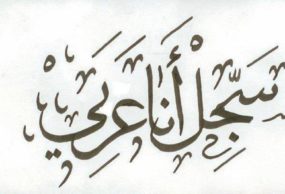 سَجِّلْ أَنَا عَرَبِي